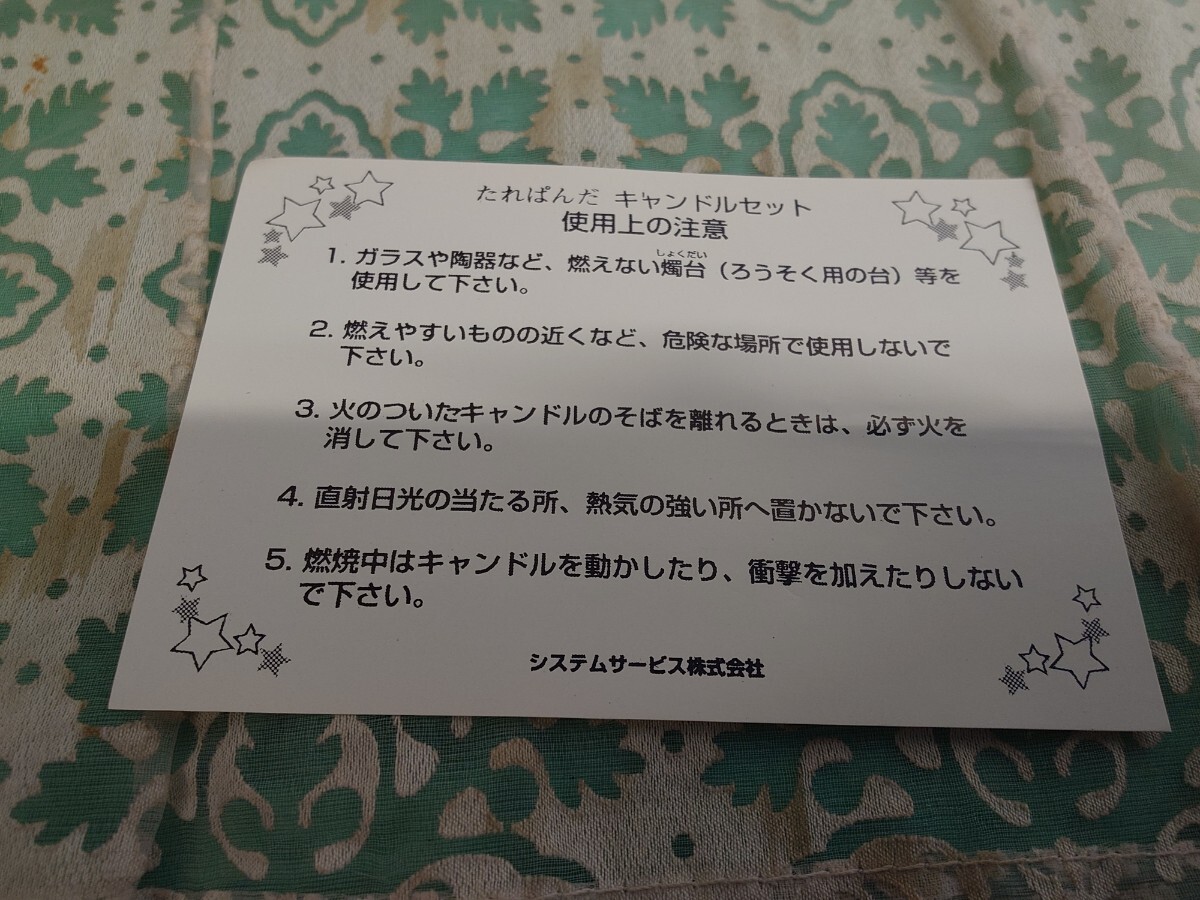 たれぱんだ キャンドルセット
使用上の注意
しょくだい
1. ガラスや陶器など、燃えない燭台（ろうそく用の台）等を
使用して下さい。
2. 燃えやすいものの近くなど、危険な場所で使用しないで
下さい。
3. 火のついたキャンドルのそばを離れるときは、必ず火を
消して下さい。
4. 直射日光の当たる所、熱気の強い所へ置かないで下さい。
5. 燃焼中はキャンドルを動かしたり、衝撃を加えたりしない
で下さい。
システムサービス株式会社